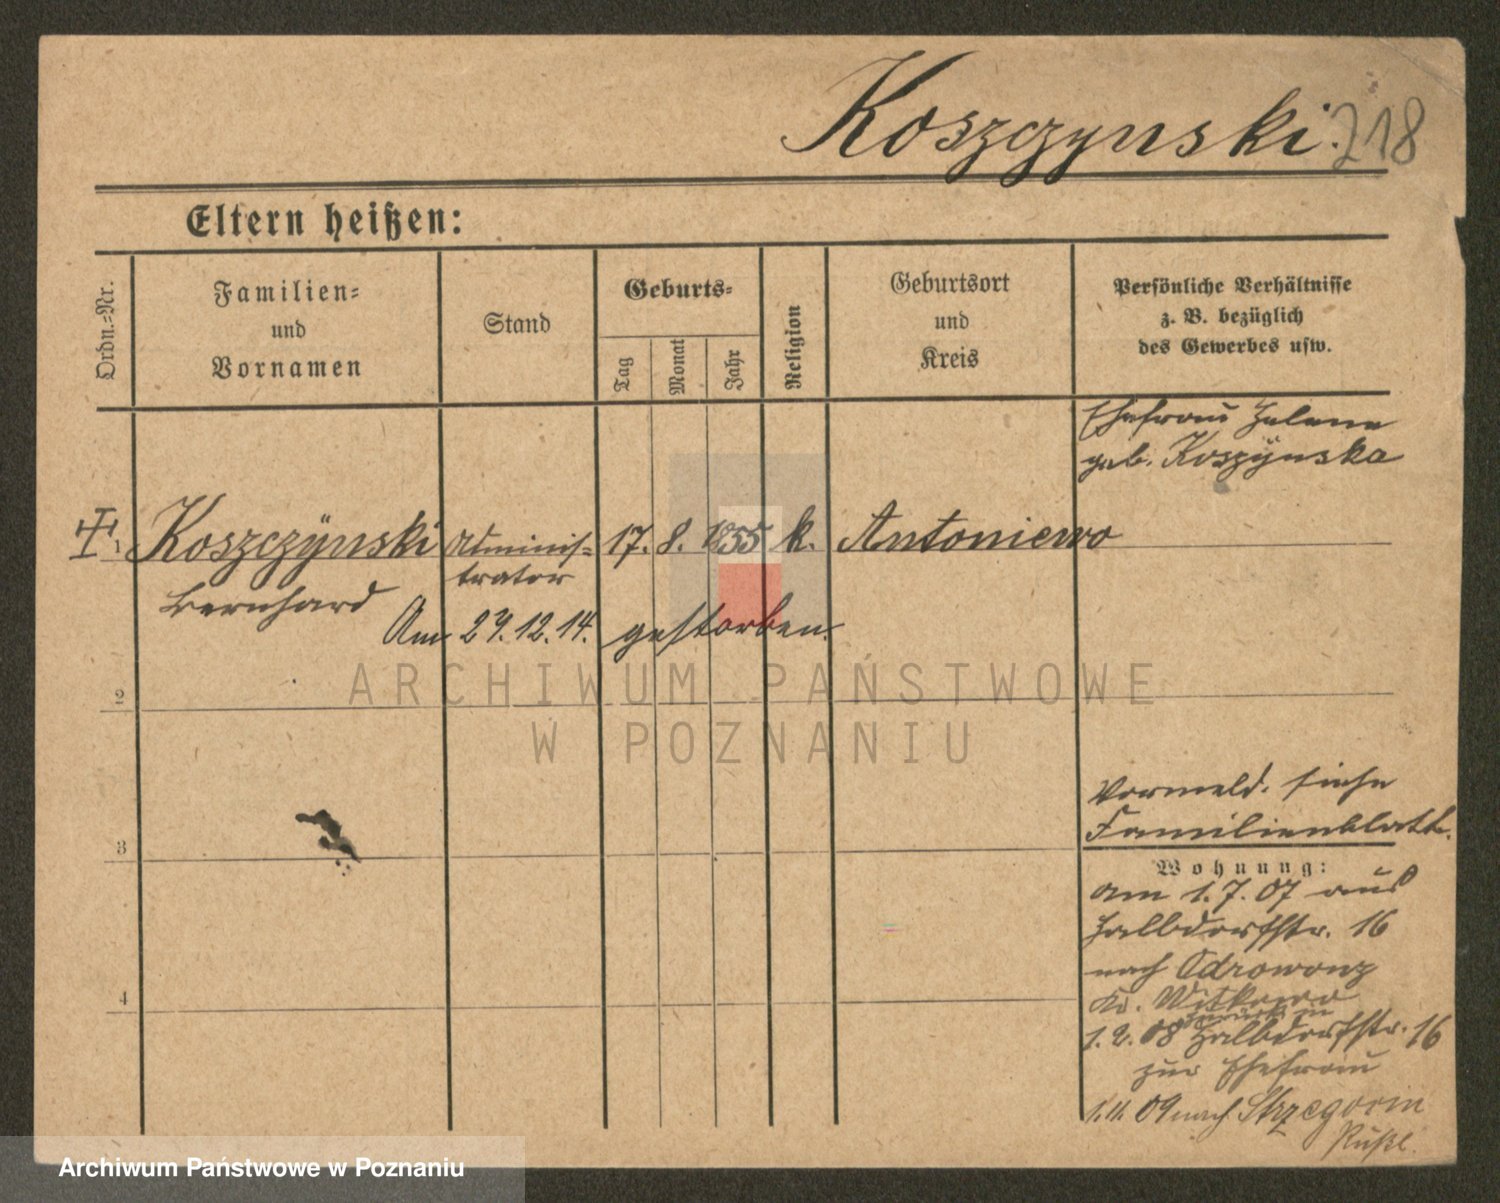 Koszczynski. 218
Eltern heißen:
Ordn.=Nr.
Familien=
und
Vornamen
Stand
Geburts=
Tag
Monat
Jahr
Religion
Geburtsort
und
Kreis
Persönliche Verhältnisse
z. B. bezüglich
des Gewerbes usw.
Ehefrau Helene
geb. Koszÿnska
1 Koszczÿnski Adminis= 17. 8. 1855 k. Antoniewo
trator
Bernhard
Am 27.12.14. gestorben.
2
3
4
Vormeld. siehe
Familienblatt.
Wohnung:
am 1.7.07 aus
Halbdorfstr. 16
nach Odrowonz
Kr. Witkowo
zurück in
1.2.08 Halbdorfstr. 16
zur Ehefrau
1.11.09 nach Strzegocin
Rußl.
ARCHIWUM PAŃSTWOWE
W POZNANIU
Archiwum Państwowe w Poznaniu